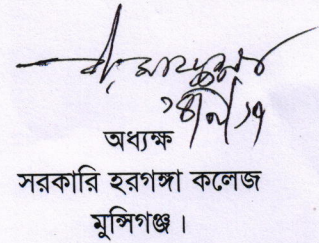 অধ্যক্ষ
সরকারি হরগঙ্গা কলেজ
মুন্সিগঞ্জ।